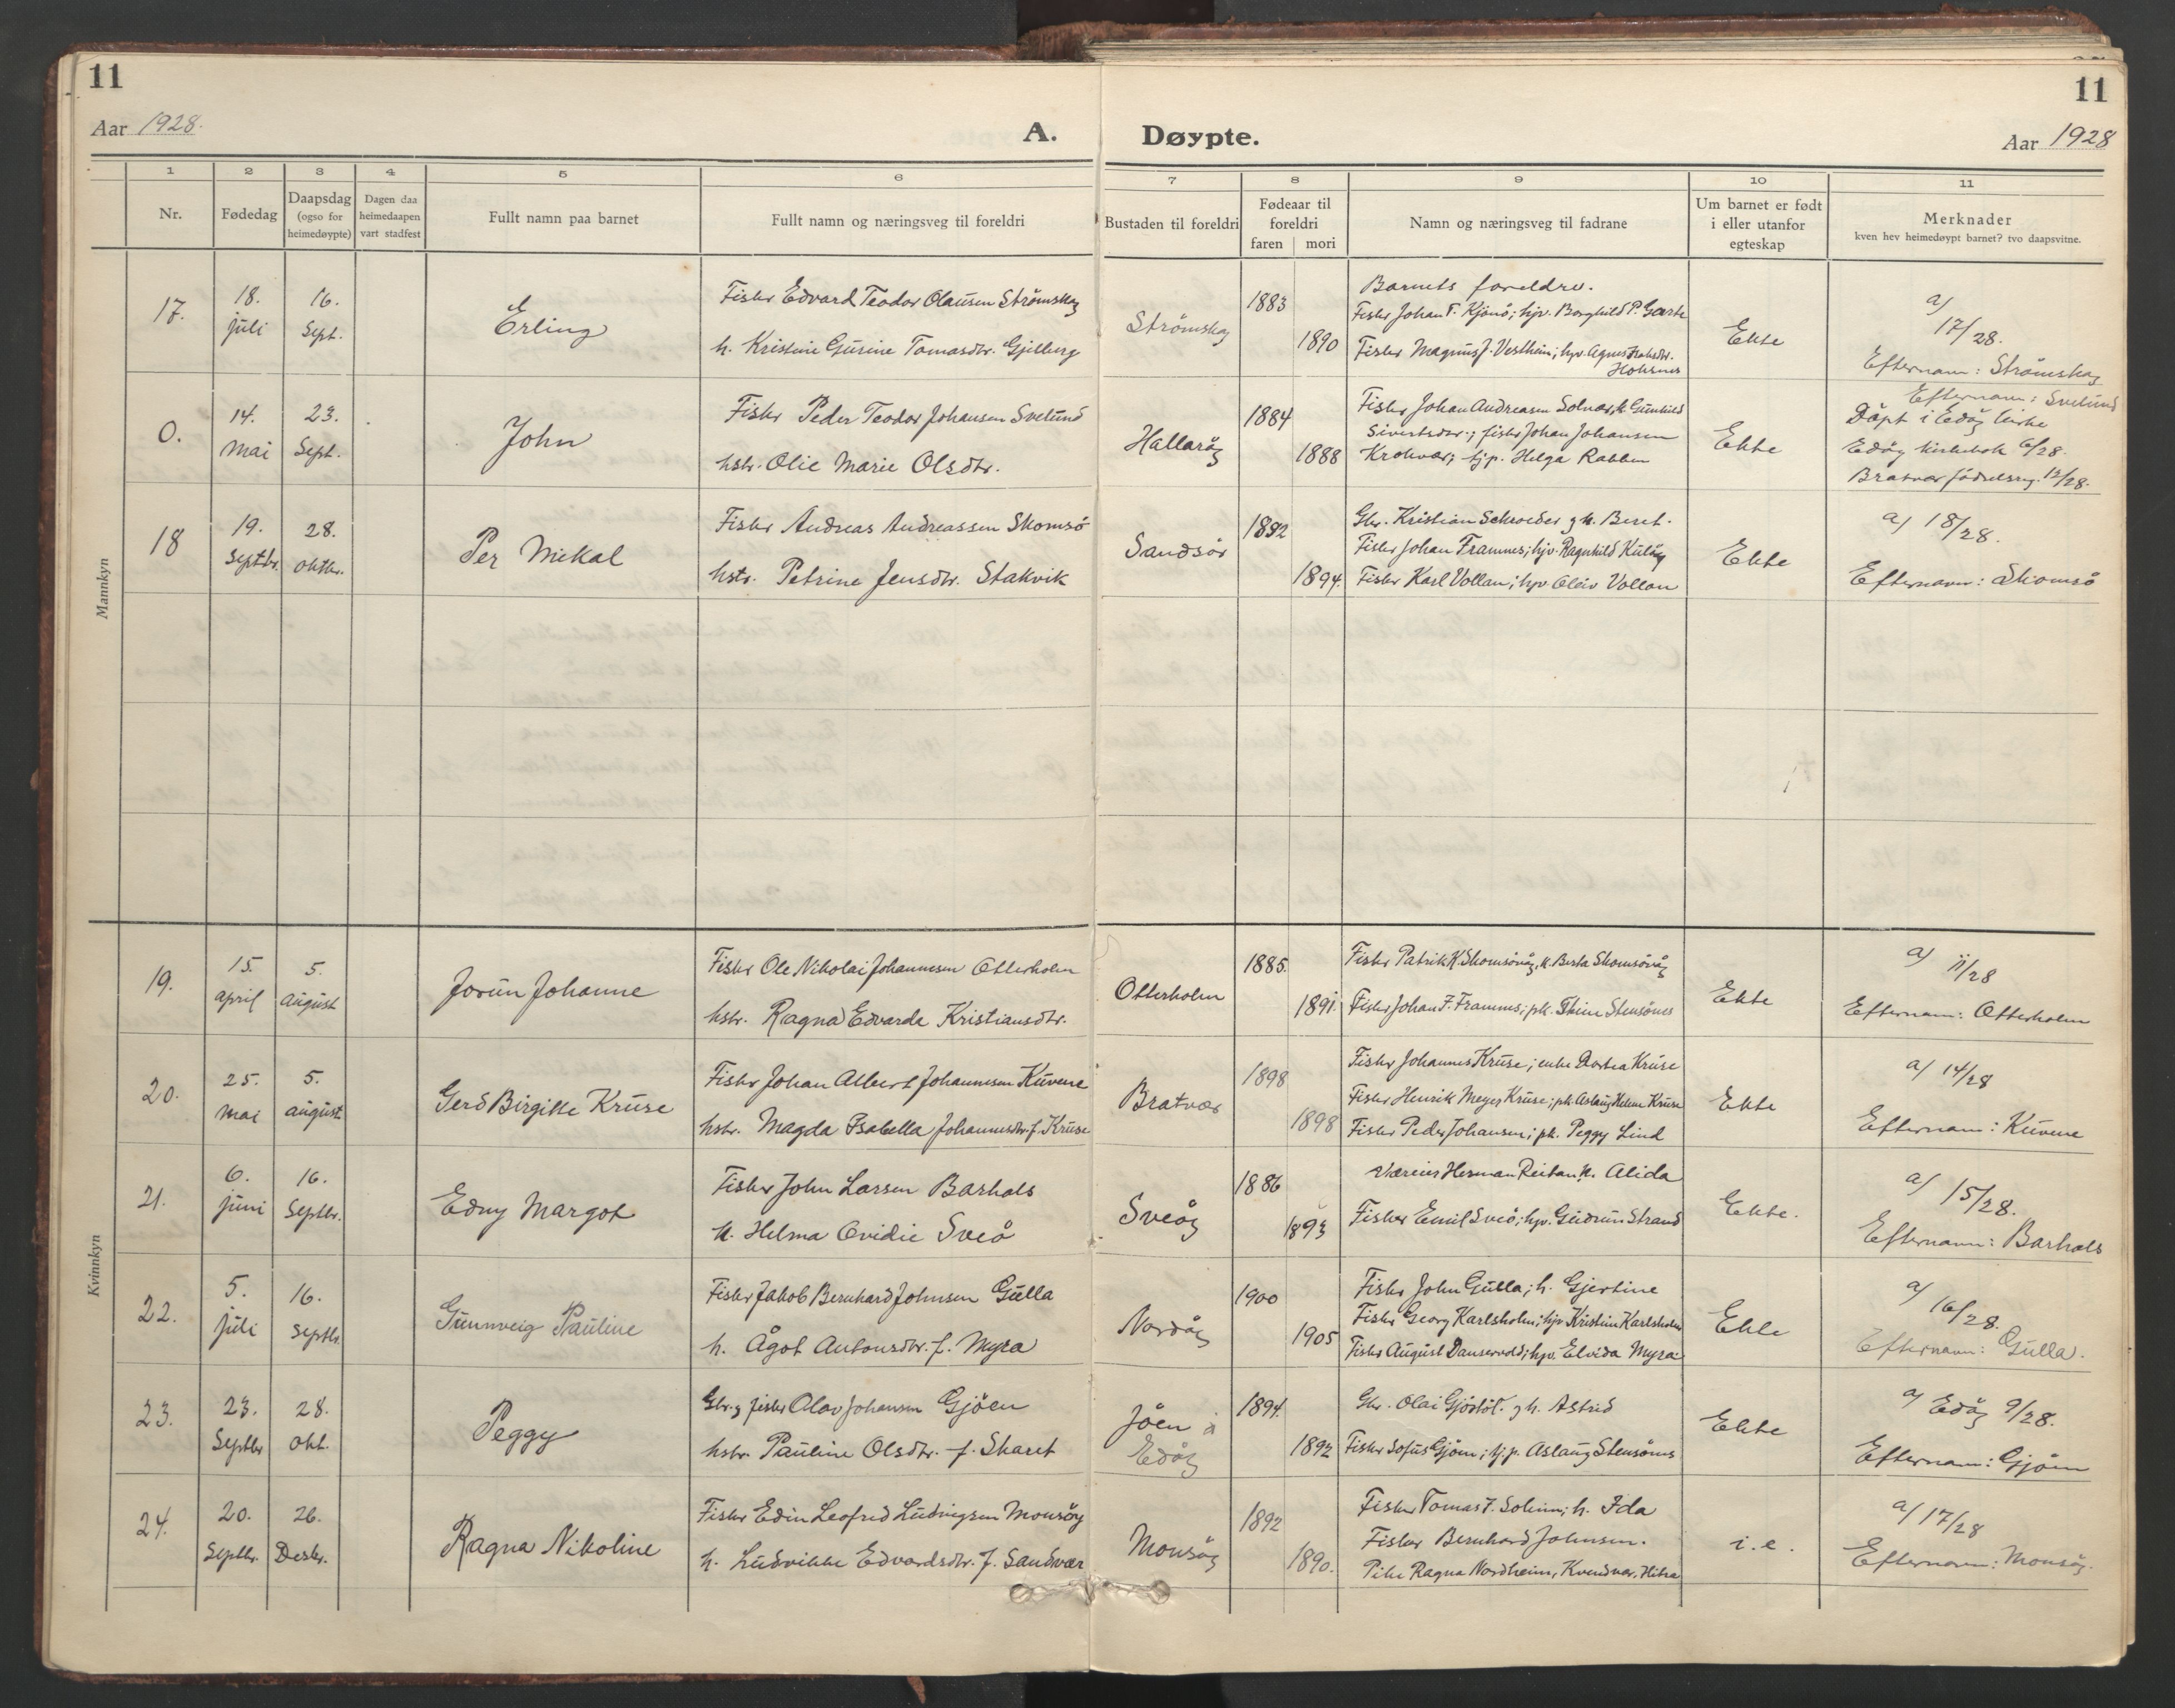 11
11
Aar 1928.
A.
Døypte.
Aar 1928
1 2 3 4 5 6 7 8 9 10 11
Nr.
Fødedag
Daapsdag
(ogso for
heimedøypte)
Dagen daa
heimedaapen
vart stadfest
Fullt namn paa barnet
Fullt namn og næringsveg til foreldri
Bustaden til foreldri
Fødeaar til
foreldri
faren mori
Namn og næringsveg til fadrane
Um barnet er født
i eller utanfor
egteskap
Merknader
kven hev heimedøypt barnet? tvo daapsvitne.
Mannkyn
17.
18.
juli
16.
Sept.
Erling
Fisker Edvard Teodor Olausen Strømskag
h. Kristine Gurine Tomasdtr. Gjelberg
Strømskag
1883
1890
Barnets foreldre.
Fisker Johan T. Kjønö; hjv. Borghild P. Gaarte
Fisker Magnus J. Vestheim; hjv. Agnes
Holsnes
Ekte
a/
17/28.
Efternavn: Strömskag
0.
14.
mai
23.
Sept.
John
Fisker Peder Teodor Johansen Svelund
hstr. Olie Marie Olsdtr.
Hallaröy
1884
1888
Fisker Johan Andreasen Solvær, h. Gunhild
Sivertsdtr.; fisker Johan Johansen
Krokvær; tjp. Helga Rabben
Ekte
Efternavn: Svelund
Döpt i Edöy kirke
Edöy kirkebok 6/28.
Bratvær födselsreg. 12/28.
18
19.
Septbr.
28.
oktbr.
Per Mikal
Fisker Andreas Andreassen Skomsö
hstr. Petrine Jensdtr. Stakvik
Sandsör
1892
1894.
Gbr. Kristian Schroeder og h. Beret.
Fisker Johan Framnes; hjv. Ragnhild Kulöy
Fisker Karl Vollan; hjv. Oleiv Vollan
Ekte
a/ 18/28.
Efternavn: Skomsö
Kvinnkyn
19.
15.
april
5.
august
Jorun Johanne
Fisker Ole Nikolai Johannesen Otterholm
hstr. Ragna Edvarda Kristiansdtr.
Otterholm
1885.
1891.
Fisker Patrik K. Skomsövåg, h. Berta Skomsövåg
Fisker Johan F. Framnes; pk. Stensönes
Ekte
a/ 11/28
Efternavn: Otterholm
20.
25.
mai
5.
august.
Gerd Birgitte Kruse
Fisker Johan Albert Johannesen Kuvene
hstr. Magda Isabella Johannesdtr. f. Kruse
Bratvær
1898
1898
Fisker Johannes Kruse; enke Dortea Kruse
Fisker Henrik Meyer Kruse; pk. Aslaug Helene Kruse
Fisker Peder Johansen; pk. Peggy Lind
Ekte
a/ 14/28
Efternavn: Kuvene
21.
6.
juni
16.
Septbr.
Edny Margot
Fisker John Larsen Barhals
h. Helma Ovidie Sveö
Sveöy
1886
1893
Væreier Herman Reitan h. Alida
Fisker Emil Sveö; hjv. Gudrun Strand
Ekte.
a/ 15/28.
Efternavn: Barhals
22.
5.
juli
16.
Septbr.
Gunnveig Pauline
Fisker Jakob Bernhard Johnsen Gulla
h. Ågot Antonsdtr. f. Myra
Nordöy
1900
1905
Fisker John Gulla; h. Gjertine
Fisker Georg Karlsholm; hjv. Kristine Karlsholm
Fisker August Danservold; hjv. Elvida Myra
Ekte
a/
16/28.
Efternavn: Gulla.
23.
23.
Septbr
28.
okt.
Peggy
Gbr. og fisker Olav Johansen Gjöen
hstr. Pauline Olsdtr. f. Skaret
Jöen i
Edöy
1894.
1892
Gbr. Olai og h. Astrid
Fisker Sofus Gjöen; tjp. Aslaug Stensönes
Ekte
a/ Edöy 9/28.
Efternavn: Gjöen
24.
20.
Septbr.
26.
Desbr.
Ragna Nikoline
Fisker Edin Leofred Ludvigsen Monsöy
h. Ludvikke Edvardsdtr. f. Sandvær
Monsöy
1892
1890.
Fisker Tomas T. Solem; h. Ida
Fisker Bernhard Johnsen.
Pike Ragna Nordheim, Kvendvær, Hitra
i.e.
a/ 17/28
Efternavn: Monsöy.